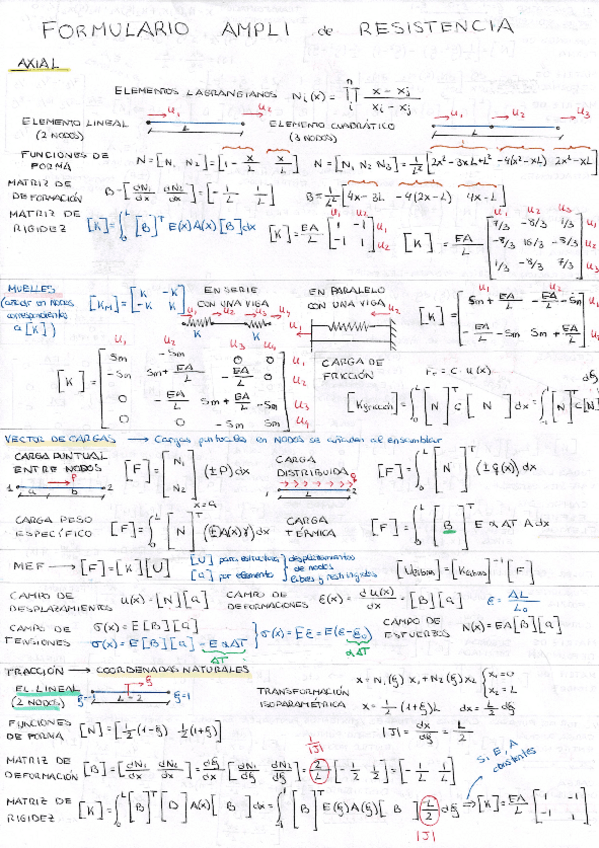 FORMULARIO AMPLI de RESISTENCIA
AXIAL
ELEMENTOS LAGRANGIANOS Ni(x) = ∏ (x - xj)/(xi - xj)
ELEMENTO LINEAL (2 NODOS) u1 u2 L
ELEMENTO CUADRÁTICO (3 NODOS) u1 u2 u3 L
FUNCIONES DE FORMA N = [N1 N2] = [1 - x/L x/L] N = [N1 N2 N3] = 1/L² [2x² - 3xL + L² -4(x² - xL) 2x² - xL]
MATRIZ DE DEFORMACIÓN B = [dN1/dx dN2/dx] = [-1/L 1/L] B = 1/L² [4x - 3L -4(2x - L) 4x - L]
MATRIZ DE RIGIDEZ [K] = ∫₀ᴸ [B]ᵀ E(x) A(x) [B] dx [K] = EA/L [1 -1; -1 1] u1 u2 [K] = EA/L [7/3 -8/3 1/3; -8/3 16/3 -8/3; 1/3 -8/3 7/3] u1 u2 u3
MUELLES
[KM] = [K -K; -K K] EN SERIE CON UNA VIGA u1 u2 u3 u4 K K
EN PARALELO CON UNA VIGA u1 u2
[K] = [Sm + EA/L -EA/L - Sm; -EA/L - Sm Sm + EA/L] u1 u2
[K] = [Sm -Sm 0 0; -Sm Sm + EA/L -EA/L 0; 0 -EA/L Sm + EA/L -Sm; 0 0 -Sm Sm] u1 u2 u3 u4
CARGA DE FRICCIÓN
VECTOR DE CARGAS → Cargas puntuales en NODOS se añaden al ensamblar
CARGA PUNTUAL ENTRE NODOS P 1 a b 2 [F] = [N1; N2] x=a (±P)
CARGA DISTRIBUIDA q 1 L 2 [F] = ∫₀ᴸ [N]ᵀ (±q(x)) dx
CARGA PESO ESPECÍFICO [F] = ∫₀ᴸ [N]ᵀ (±A(x)γ) dx
CARGA TÉRMICA [F] = ∫₀ᴸ [B]ᵀ E α ΔT A dx
MEF → [F] = [K][U] [U] para estructura [a] por elemento } desplazamientos de nodos libres y restringidos
CAMPO DE DESPLAZAMIENTOS u(x) = [N][a] CAMPO DE DEFORMACIONES ε(x) = du(x)/dx = [B][a] ε = ΔL/L₀
CAMPO DE TENSIONES σ(x) = E[B][a] σ(x) = E[B][a] - EαΔT ΔT } σ(x) = Eε = E(ε - ε₀) αΔT
CAMPO DE ESFUERZOS N(x) = EA[B][a]
TRACCIÓN → COORDENADAS NATURALES
EL. LINEAL (2 NODOS) ξ L = 2 ξ=1
TRANSFORMACIÓN ISOPARAMÉTRICA x = N1(ξ) x1 + N2(ξ) x2 { x1 = 0 x2 = L
x = L/2 (1+ξ) dx = L/2 dξ
|J| = dx/dξ = L/2
FUNCIONES DE FORMA [N] = [1/2 (1-ξ) 1/2 (1+ξ)]
MATRIZ DE DEFORMACIÓN [B] = [dN1/dx dN2/dx] = dξ/dx [dN1/dξ dN2/dξ] = 2/L [-1/2 1/2] = [-1/L 1/L] 1/|J|
S, E, A constantes
MATRIZ DE RIGIDEZ [K] = ∫₀ᴸ [B]ᵀ [D] A(x) [B] dx = ∫ [B]ᵀ E(ξ) A(ξ) [B] L/2 dξ ⇒ [K] = EA/L [1 -1; -1 1] |J|